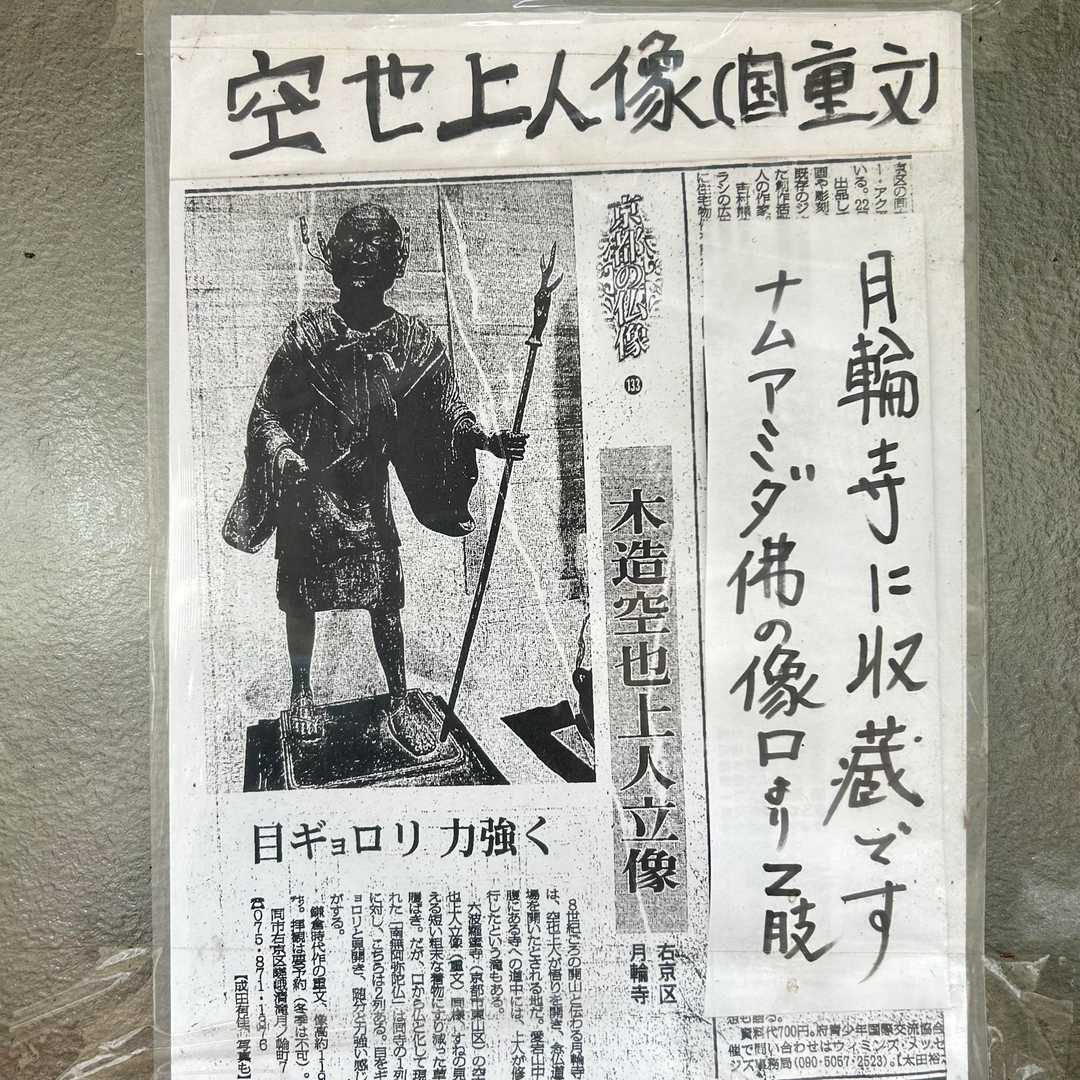 空也上人像(国重文)
いる。22
出品し
画や彫刻
既存のジ
た創作造
人の作家。
吉村熊
ラシの広
に住宅物
月輪寺に収蔵です
ナムアミダ佛の像口より二肢
京都の仏像 133
木造空也上人立像
右京区
月輪寺
目ギョロリ 力強く
8世紀ごろの開山と伝わる月輪寺
は、空也上人が悟りを開き、念仏道
場を開いたとされる地だ。愛宕山中
腹にある寺への道中には、上人が修
行したという滝もある。
六波羅蜜寺(京都市東山区)の空
也上人立像(重文)同様、すねの見
える短い粗末な着物にすり減った草
履ばき。だが、口から仏と化して現
れた「南無阿弥陀仏」は同寺の1列
に対し、こちらは2列ある。目をギ
ョロリと見開き、随分と力強い感じ
がする。
鎌倉時代作の重文、像高約119
㌢。拝観は要予約(冬季は不可)。
同市右京区嵯峨清滝月ノ輪町7
☎075・871・1376
【成田有佳、写真も】
資料代700円。府青少年国際交流協会
催で問い合わせはウィミンズ・メッセ
ジズ事務局(090・5057・2523)。【太田裕